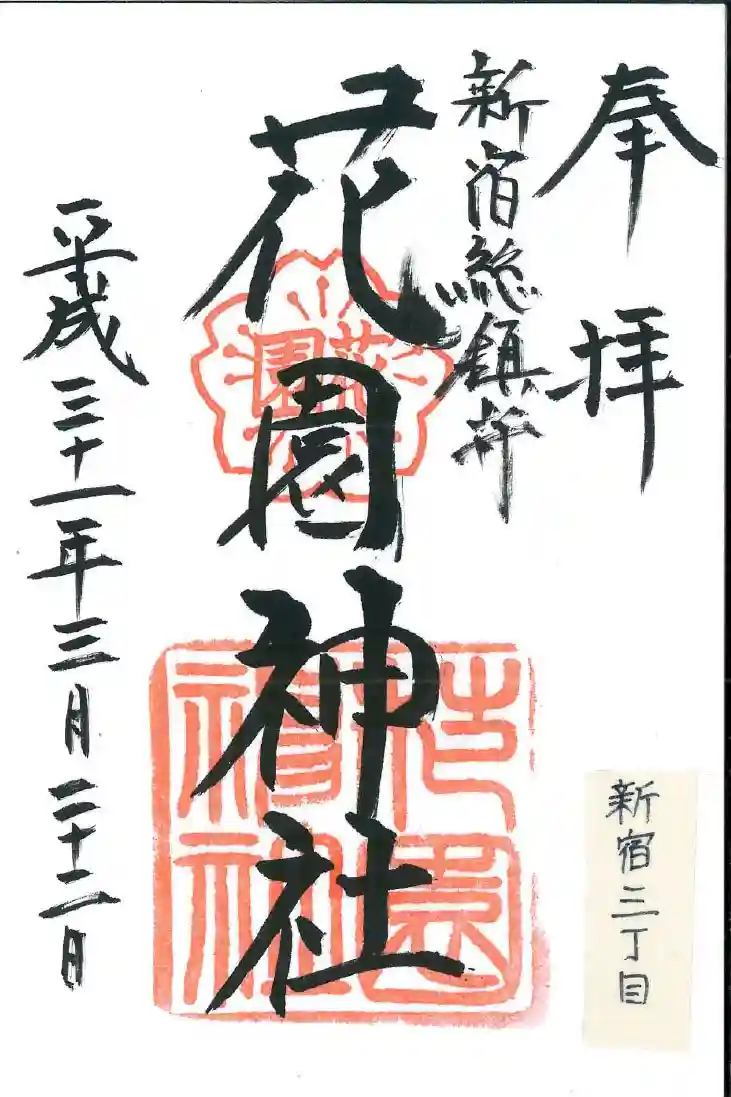 奉拝
新宿総鎮守
花園神社
花園
花園神社
平成三十一年三月二十二日
新宿三丁目